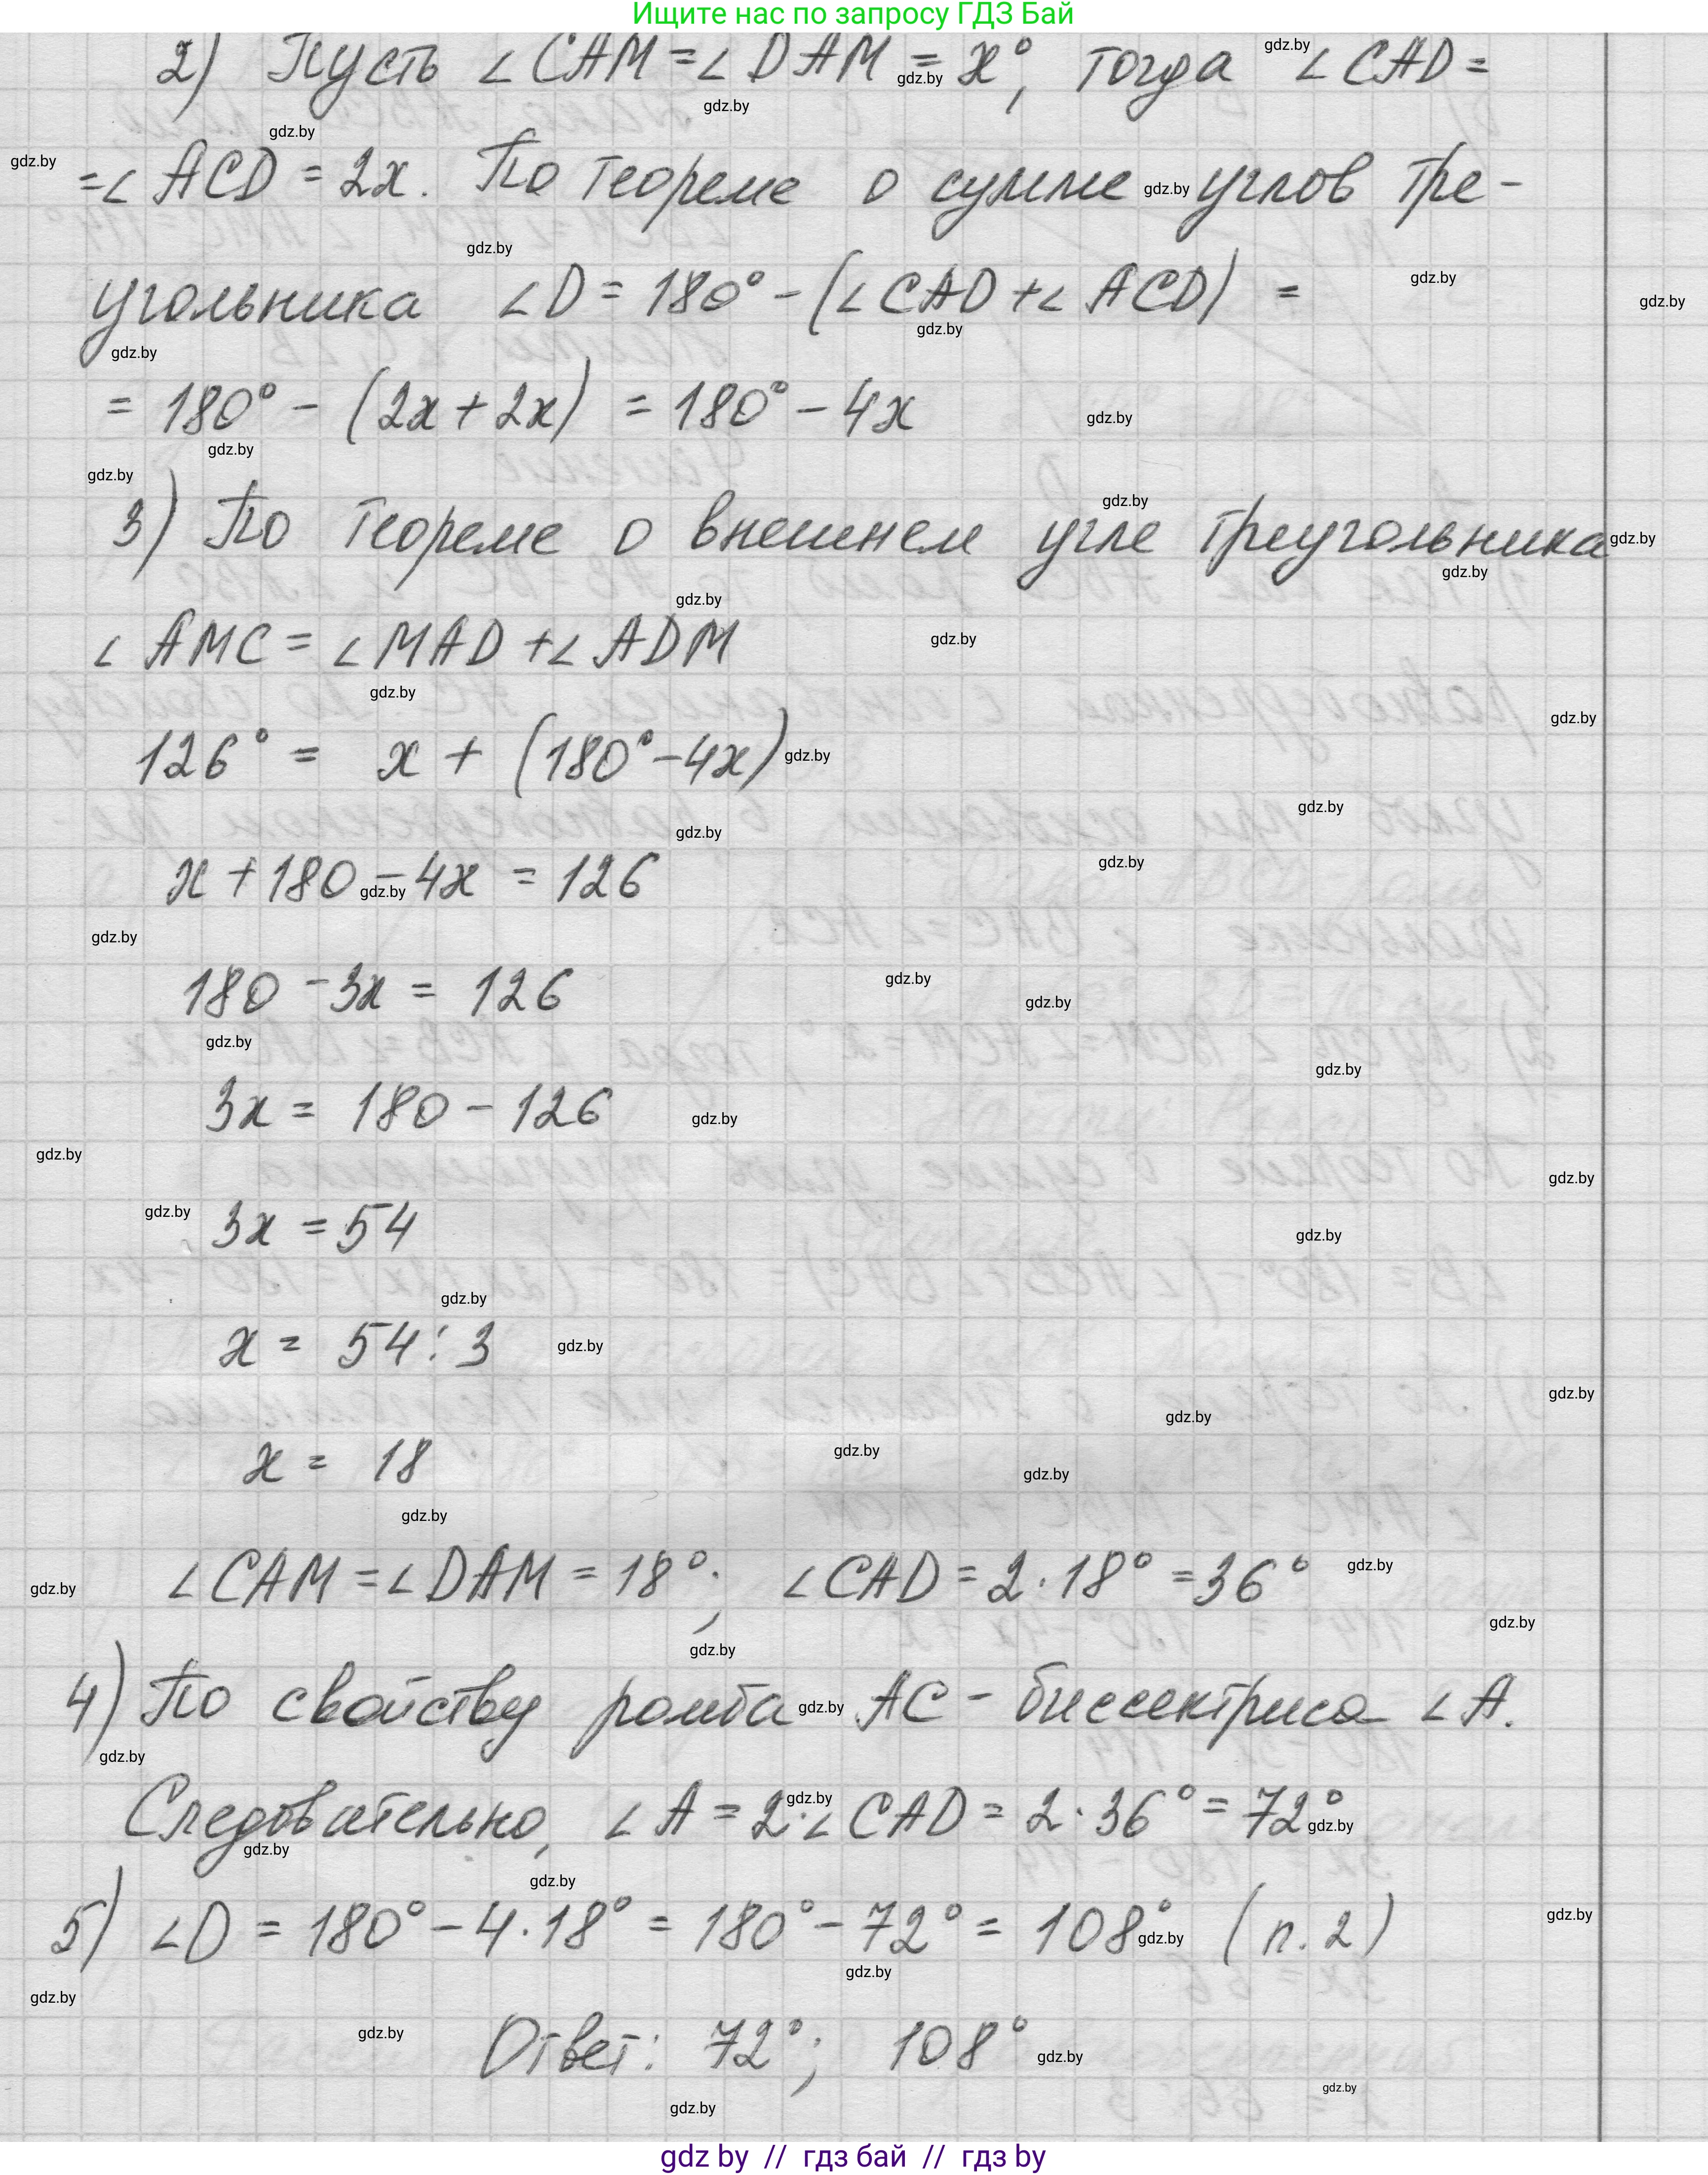 Ищите нас по запросу ГДЗ Бай
2) Пусть ∠CAM = ∠DAM = x°, тогда ∠CAD =
= ∠ACD = 2x. По теореме о сумме углов тре-
угольника ∠D = 180° - (∠CAD + ∠ACD) =
= 180° - (2x + 2x) = 180° - 4x
3) По теореме о внешнем угле треугольника
∠AMC = ∠MAD + ∠ADM
126° = x + (180° - 4x)
x + 180 - 4x = 126
180 - 3x = 126
3x = 180 - 126
3x = 54
x = 54 : 3
x = 18
∠CAM = ∠DAM = 18°; ∠CAD = 2·18° = 36°
4) По свойству ромба AC - биссектриса ∠A.
Следовательно, ∠A = 2·∠CAD = 2·36° = 72°
5) ∠D = 180° - 4·18° = 180° - 72° = 108° (п. 2)
Ответ: 72°; 108°
gdz by // гдз бай // гдз by